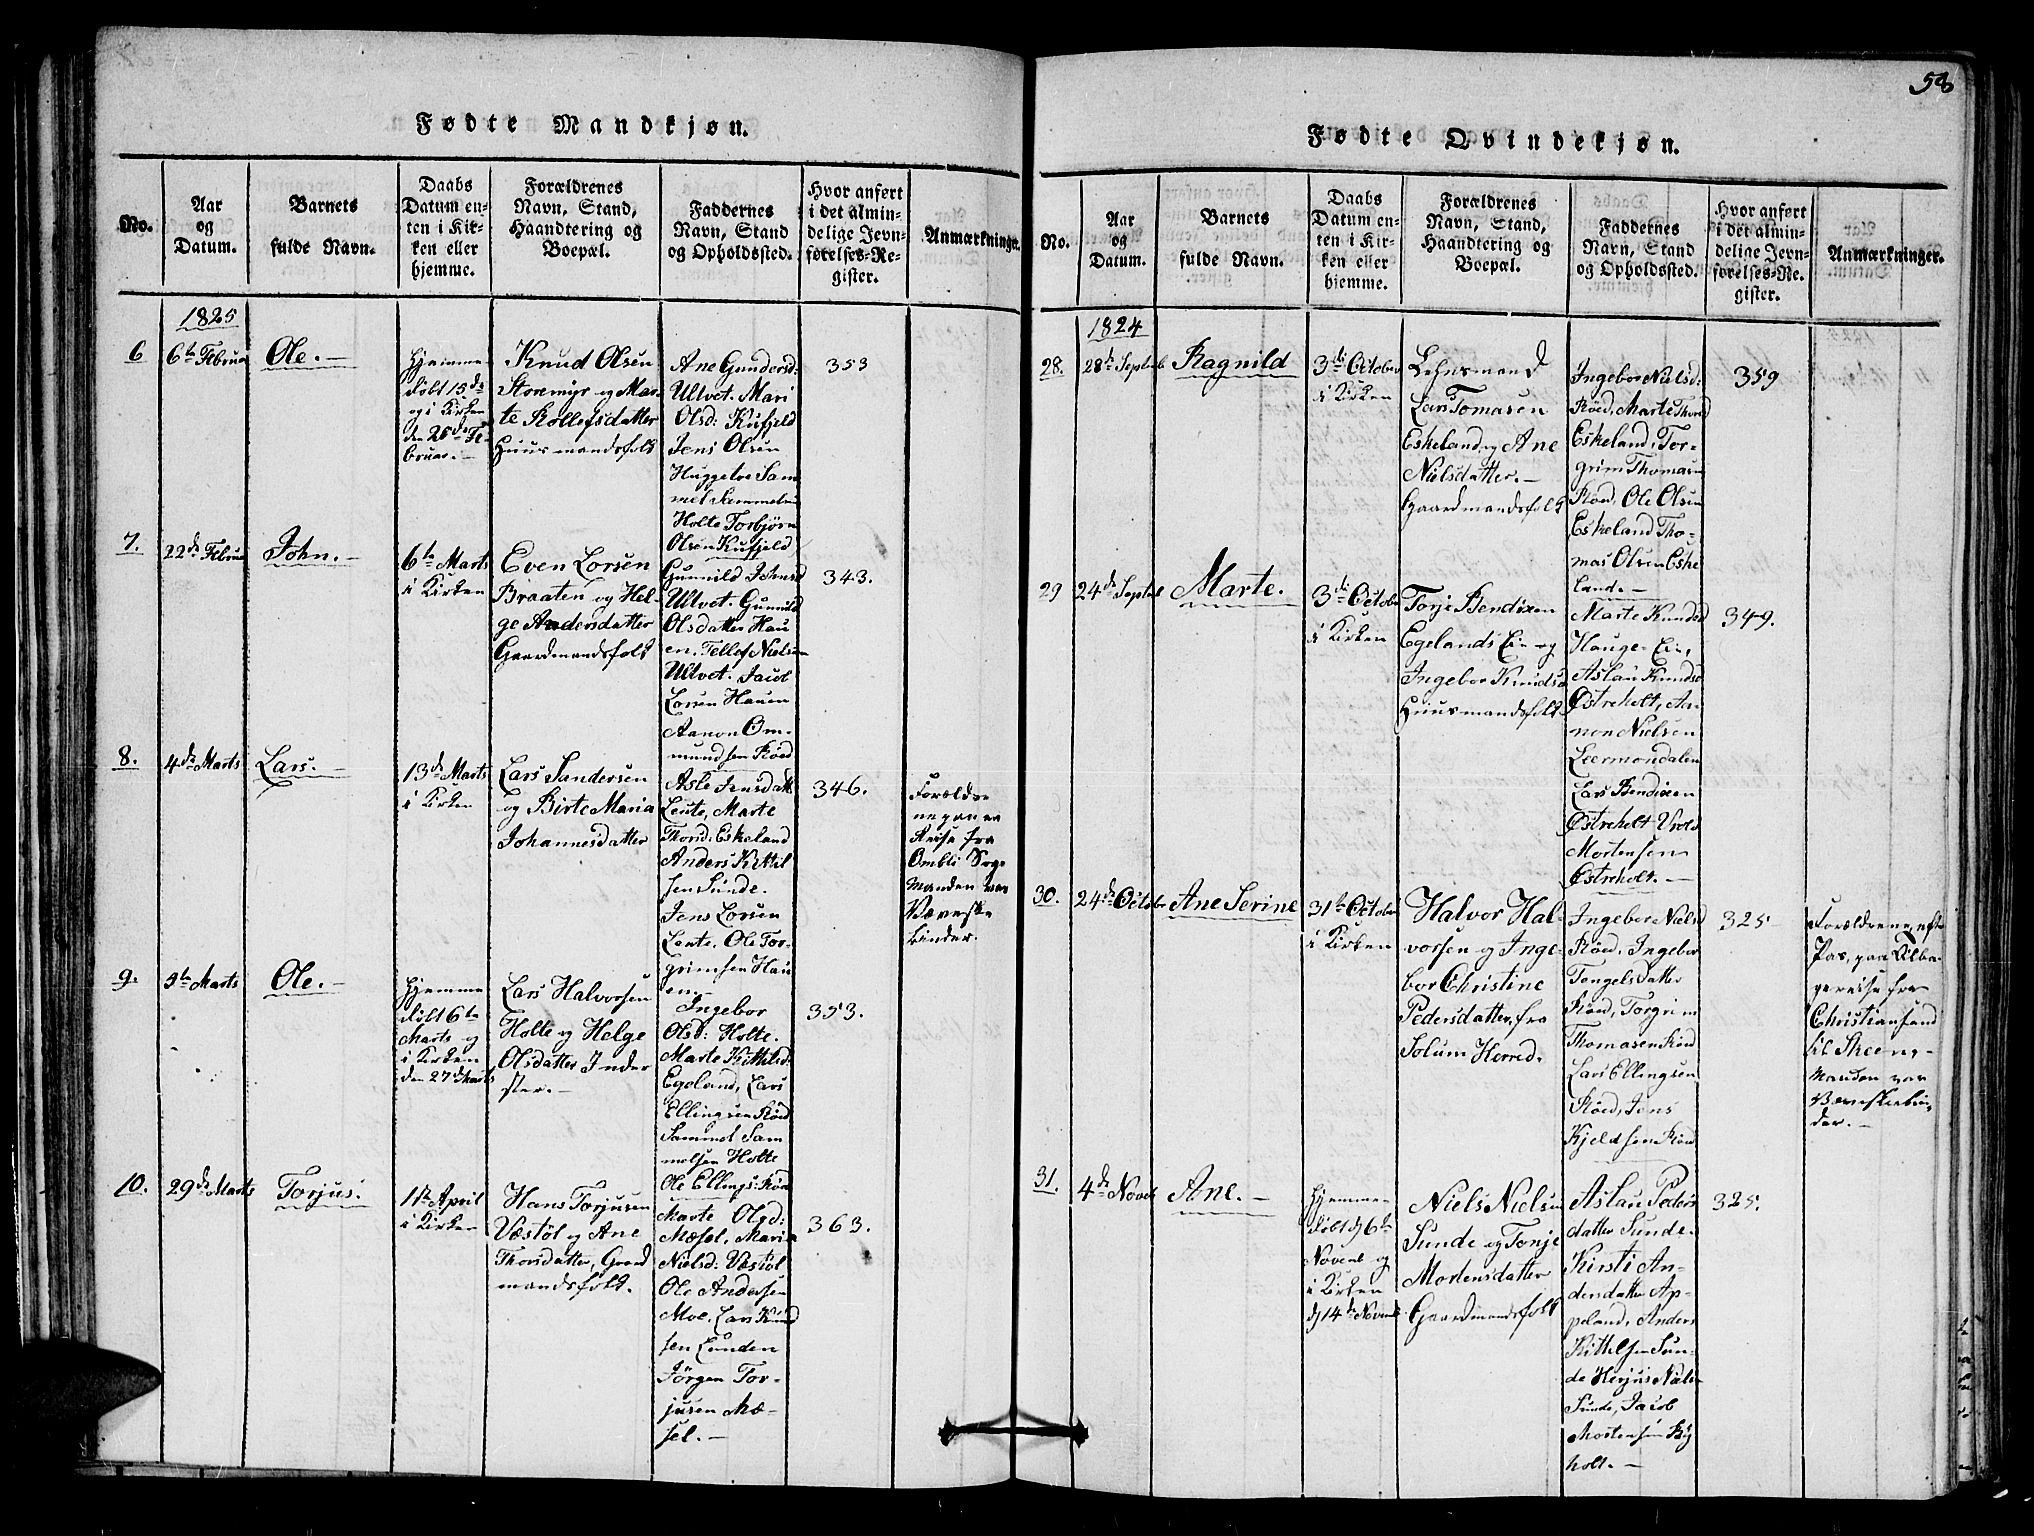 58
Fødte Mandkjøn.
No.
Aar
og
Datum.
Barnets
fulde Navn.
Daabs
Datum en-
ten i Kir-
ken eller
hjemme.
Forældrenes
Navn, Stand,
Haandtering og
Boepæl.
Faddernes
Navn, Stand
og Opholdssted.
Hvor anført
i det almin-
delige Jevn-
førelses-Re-
gister.
Anmærkninger.
1825
6
6te Februar
Ole. -
hjemme
døbt 15de
og i Kirken
den 25de Fe-
bruar. -
Knud Olsen
Storemyr og Mar-
te Rollefsdatter
Huusmandsfolk
Ane Gundersd:
Ulvet. Mari
Olsd: Kufjeld
Jens Olsen
Huggeloe Sam
mel Sammelsen
Holte Torbjørn
Olsen Kufjeld
353
7.
22de Februar
John. -
6te Marts
i Kirken
Even Lorsen
Braaten og Hel-
ge Andersdatter
Gaardmandsfolk
Gunnild Johnsd
Ulvet. Gunnild
Olsdatter Hau
en. Tellef Nielsen
Ulvet. Jacob
Lorsen Hauen
Aanon Om-
mundsen Røed
343.
8.
4de Marts
Lars. -
13de Marts
i Kirken
Lars Sandersen
og Birte Maria
Johannesdatter
Asle Jensdatt
Lente, Marte
Thord: Eskeland
Anders Kittil
sen Sunde.
Jens Lorsen
Lente, Ole Tor-
grimsen Hau
en. -
346.
Forældre
ne paa en
Reise fra
Ombli Sogn
Manden var
Væveske
binder.
9.
5te Marts
Ole. -
hjemme
døbt 6te
Marts og
i Kirken
den 27de Marts
Lars Halvorsen
Holte og Helge
Olsdatter Inder
ster. -
Ingebor
Olsd: Holte.
Marte Kittilsd:
Egeland, Lars
Ellingsen Røed
Sammel Sam
melsen Holte
Ole Ellings: Røed
353.
10.
29de Marts
Torjus.
1ste April
i Kirken
Hans Torjusen
Væstøl og Ane
Thorsdatter, Gaard
mandsfolk.
Marte Olsd:
Mæsel, Maria
Nielsd: Væstøl
Ole Andersen
Moe, Lars Knud
sen Lunden
Jörgen Tor-
jusen Mæ-
sel. -
363.
Fødte Qvindekjøn.
No.
Aar
og
Datum.
Barnets
fulde Navn.
Daabs
Datum en-
ten i Kir-
ken eller
hjemme.
Forældrenes
Navn, Stand,
Haandtering og
Boepæl.
Faddernes
Navn, Stand
og Opholdssted.
Hvor anført
i det almin-
delige Jevn-
førelses-Re-
gister.
Anmærkninger.
1824
28.
28de Septeb
Ragnild
3die October
i Kirken
Lehnsmand
Lars Tomasen
Eskeland og Ane
Nielsdatter. -
Gaardmandsfolk
Ingebor Nielsd:
Røed, Marte Thorsd
Eskeland, Tor-
grim Thomasen
Røed, Ole Olsen
Eskeland Tho-
mas Olsen Eske
land. -
359
29
24de Septeb
Marte.
3die October
i Kirken
Torje Bendixen
Egelands Eie og
Ingebor Knudsd
Huusmandsfolk
Marte Knudsd
Hauge Eie,
Aslau Knudsd
Østreholt, An-
non Nielsen
Leermondalen
Lars Bendixen
Østreholt Vrold
Mortensen
Østreholt. -
349.
30.
24de Octobr
Ane Serine
31te October
i Kirken
Halvor Hal-
vorsen og Inge-
bor Christine
Pedersdatter, fra
Solum Herred.
Ingebor Nielsd
Røed, Ingebor
Tengelsdatter
Røed, Torgrim
Thomasen Røed
Lars Ellingsen
Røed, Jens
Kjeldsen Røed
325
Forældrene, efter
Pas, paa Tilba-
gereise fra
Christiansand
til Skeen -
Manden var
Væveskebin,
der. -
31.
4de Noveb
Ane. -
hjemme
døbt d 6te
Novemb og
i Kirken
d 14de Novemb
Niels Nielsen
Sunde og Tonje
Mortensdatter
Gaardmandsfolk
Aslau Peders
datter Sunde.
Kirsti An-
dersdatter Ap-
peland, Anders
Kittelsen Sun-
de Herjus Niels
Sunde, Jacob
Mortensen Ry
holt. -
325.